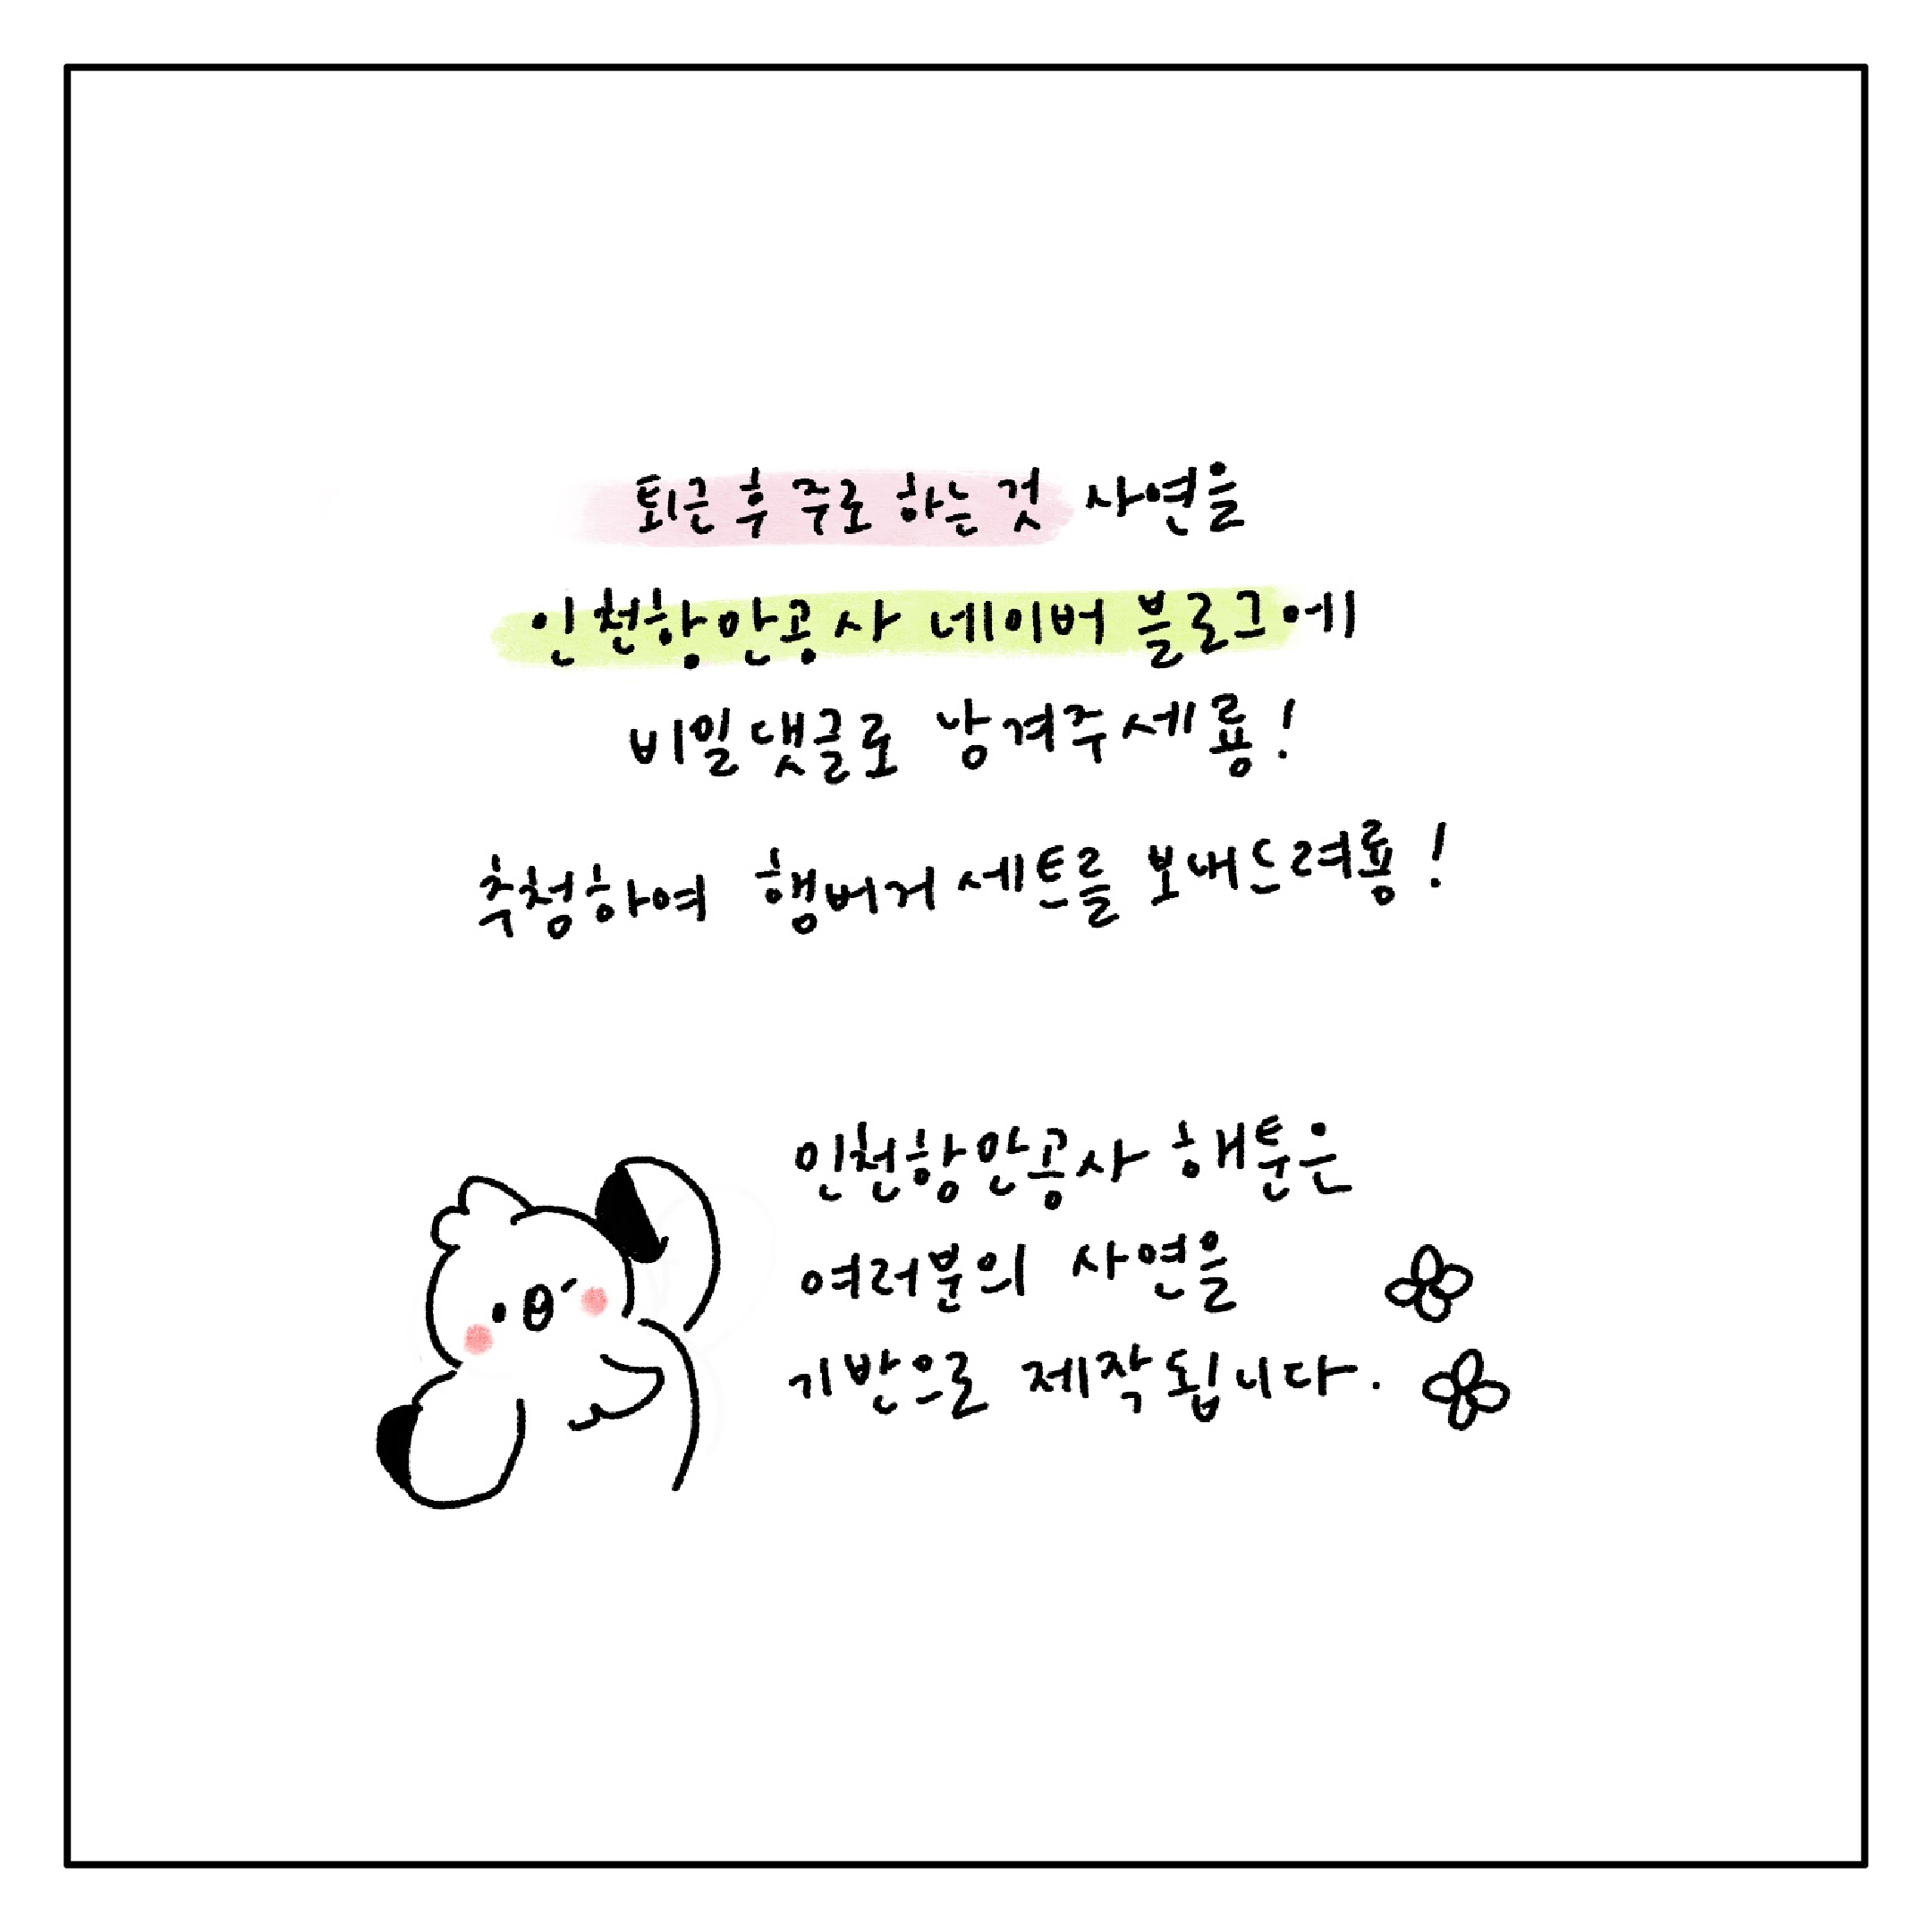 퇴근 후 주로 하는 것 사연을
인천항만공사 네이버 블로그에
비밀댓글로 남겨주세룡!
추첨하여 햄버거세트를 보내드려룡!
인천항만공사 해툰은
여러분의 사연을
기반으로 제작됩니다.